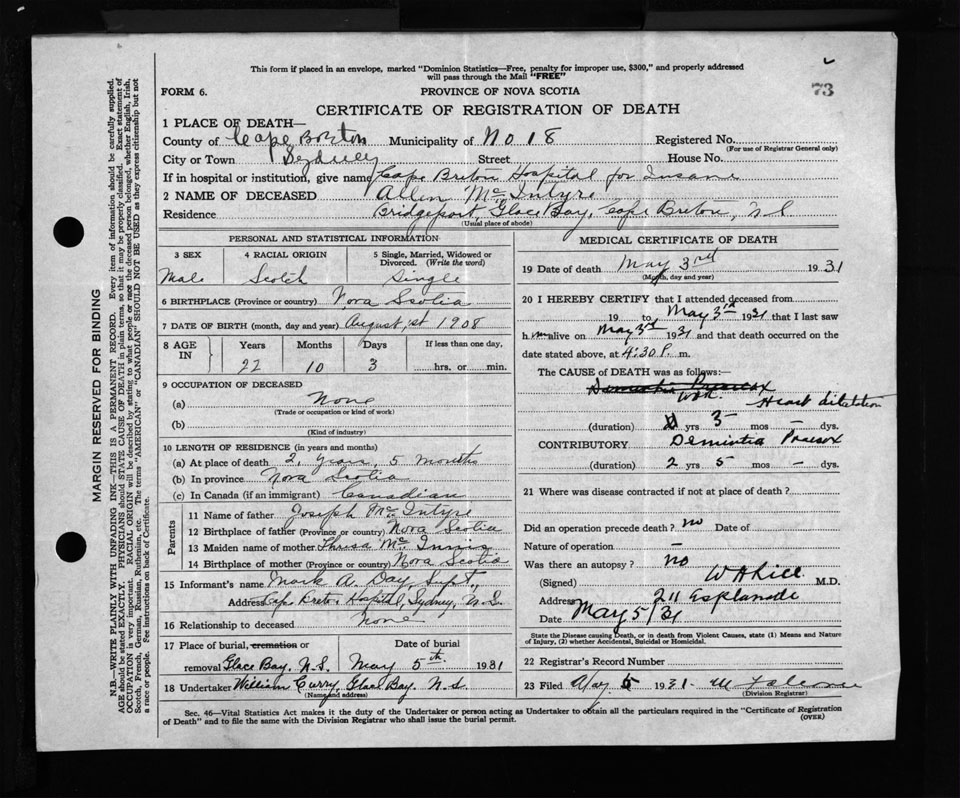 This form if placed in an envelope, marked "Dominion Statistics—Free, penalty for improper use, $300," and properly addressed
will pass through the Mail "FREE"
73
FORM 6.
PROVINCE OF NOVA SCOTIA
CERTIFICATE OF REGISTRATION OF DEATH
1 PLACE OF DEATH—
County of Cape Breton Municipality of No 18 Registered No.
(For use of Registrar General only)
City or Town Sydney Street House No.
If in hospital or institution, give name Cape Breton Hospital for Insane
2 NAME OF DECEASED Allen McIntyre
Residence Bridgeport, Glace Bay, Cape Breton, N S
(Usual place of abode)
PERSONAL AND STATISTICAL INFORMATION
3 SEX 4 RACIAL ORIGIN 5 Single, Married, Widowed or Divorced. (Write the word)
Male Scotch Single
6 BIRTHPLACE (Province or country) Nova Scotia
7 DATE OF BIRTH (month, day and year) August, 1st 1908
8 AGE IN Years Months Days If less than one day,
22 10 3 hrs. or min.
9 OCCUPATION OF DECEASED
(a) None
(Trade or occupation or kind of work)
(b)
(Kind of industry)
10 LENGTH OF RESIDENCE (in years and months)
(a) At place of death 2 years, 5 months
(b) In province Nova Scotia
(c) In Canada (if an immigrant) Canadian
Parents
11 Name of father Joseph McIntyre
12 Birthplace of father (Province or country) Nova Scotia
13 Maiden name of mother McInnis
14 Birthplace of mother (Province or country) Nova Scotia
15 Informant's name Mark A. Day, Supt.,
Address Cape Breton Hospital, Sydney, N.S.
16 Relationship to deceased None
17 Place of burial, cremation or removal Glace Bay, N.S.
Date of burial May 5th 1931
18 Undertaker William Curry, Glace Bay, N.S.
(Name and address)
MEDICAL CERTIFICATE OF DEATH
19 Date of death May 3rd 1931
(Month, day and year)
20 I HEREBY CERTIFY that I attended deceased from
19 to May 3rd 1931 that I last saw
h m alive on May 3rd 1931 and that death occurred on the
date stated above, at 4:30 P. m.
The CAUSE OF DEATH was as follows:—
Heart dilitation
(duration) yrs 3 mos – dys.
CONTRIBUTORY Dementia Praecox
(duration) 2 yrs 5 mos – dys.
21 Where was disease contracted if not at place of death?
Did an operation precede death? no Date of
Nature of operation –
Was there an autopsy? no
(Signed) M.D.
Address 211 Esplanade
Date May 5/31
State the Disease causing Death, or in death from Violent Causes, state (1) Means and Nature
of Injury, (2) whether Accidental, Suicidal or Homicidal.
22 Registrar's Record Number
23 Filed 5 1931
(Division Registrar)
Sec. 46—Vital Statistics Act makes it the duty of the Undertaker or person acting as Undertaker to obtain all the particulars required in the "Certificate of Registration
of Death" and to file the same with the Division Registrar who shall issue the burial permit.
(OVER)
MARGIN RESERVED FOR BINDING
N.B.—WRITE PLAINLY WITH UNFADING INK—THIS IS A PERMANENT RECORD. Every item of information should be carefully supplied.
AGE should be stated EXACTLY. PHYSICIANS should STATE CAUSE OF DEATH in plain terms, so that it may be properly classified. Exact statement of
OCCUPATION is very important. RACIAL ORIGIN will be described by stating to what people or race the deceased person belonged, whether English, Irish,
Scotch, French, German, Russian, Ruthenian, etc. The terms "AMERICAN" or "CANADIAN" SHOULD NOT BE USED as they express citizenship but not
a race or people. Fee instructions on back of Certificate.